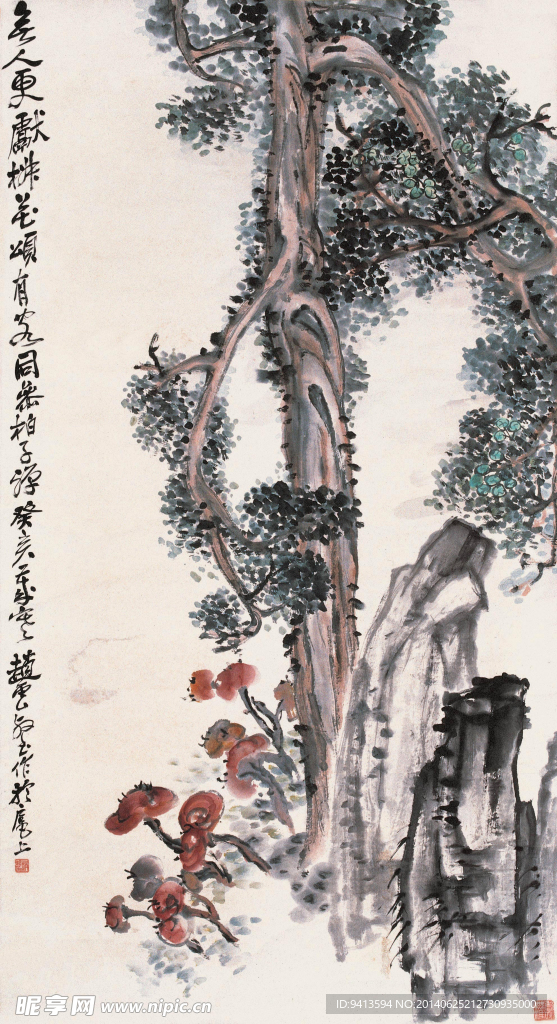 無人更獻椒花頌有客同參柏子禪癸亥歲寒趙雲壑作於滬上
昵享网 www.nipic.cn
ID:9413594 NO.20140625212730935000